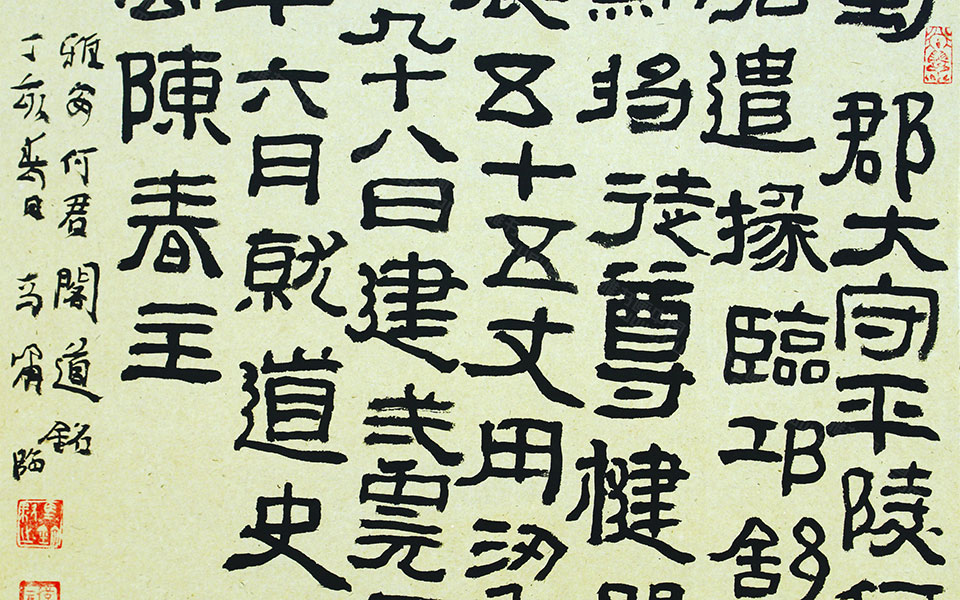 蜀郡大守平陵何
遣掾臨邛舒
將徒尊楗閣
袤五十五丈用功
九十八日建武元
年六月就道史
云陳春主
雅安何君閣道銘
丁亥春日臨